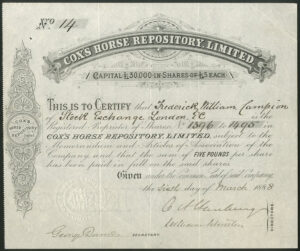 No 14
COX'S HORSE REPOSITORY, LIMITED.
CAPITAL £30,000 IN SHARES OF £5 EACH.
THIS IS TO CERTIFY that Frederick William Campion
of Stock Exchange London E.C. is the
Registered Proprietor of Shares No 1396 to 1495 in
COX'S HORSE REPOSITORY, LIMITED, subject to the
Memorandum and Articles of Association of the
Company and that the sum of FIVE POUNDS per share
has been paid in full on the said shares.
Given under the Common Seal of the Company,
the Sixth day of March 1888
DIRECTORS.
George
SECRETARY.
William